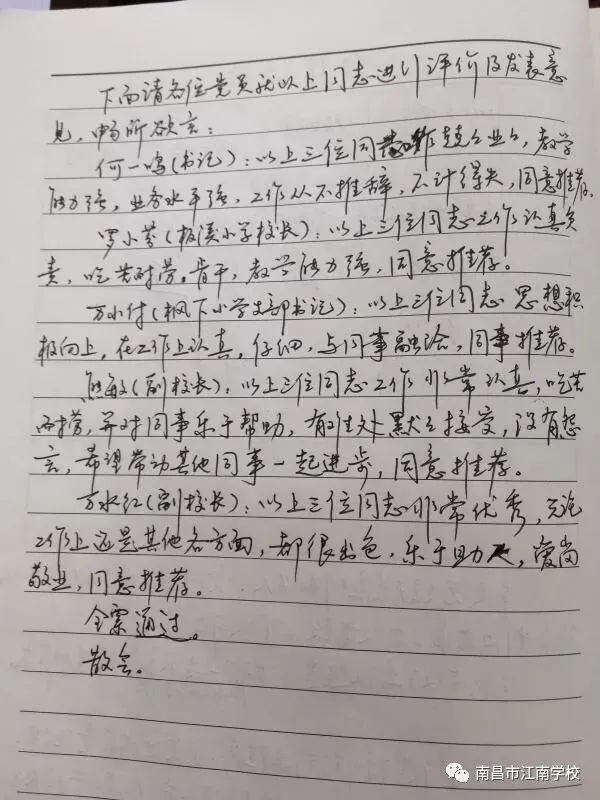 下面请各位党员就以上同志进行评价及发表意
见，畅所欲言：
何一鸣（书记）：以上三位同志工作兢兢业业，教学
能力强，业务水平强，工作从不推辞，不计得失，同意推荐。
罗小芬（板溪小学校长）：以上三位同志工作认真负
责，吃苦耐劳。肯干，教学能力强，同意推荐。
万小付（枫下小学支部书记）：以上三位同志思想积
极向上，在工作上认真，仔细，与同事融洽，同事推荐。
熊敏（副校长）：以上三位同志工作非常认真，吃苦
耐劳，并对同事乐于帮助，有难处默默接受，没有怨
言，希望带动其他同事一起进步，同意推荐。
万水红（副校长）：以上三位同志非常优秀，无论
工作上还是其他各方面，都很出色，乐于助人，爱岗
敬业，同意推荐。
全票通过。
散会。
南昌市江南学校